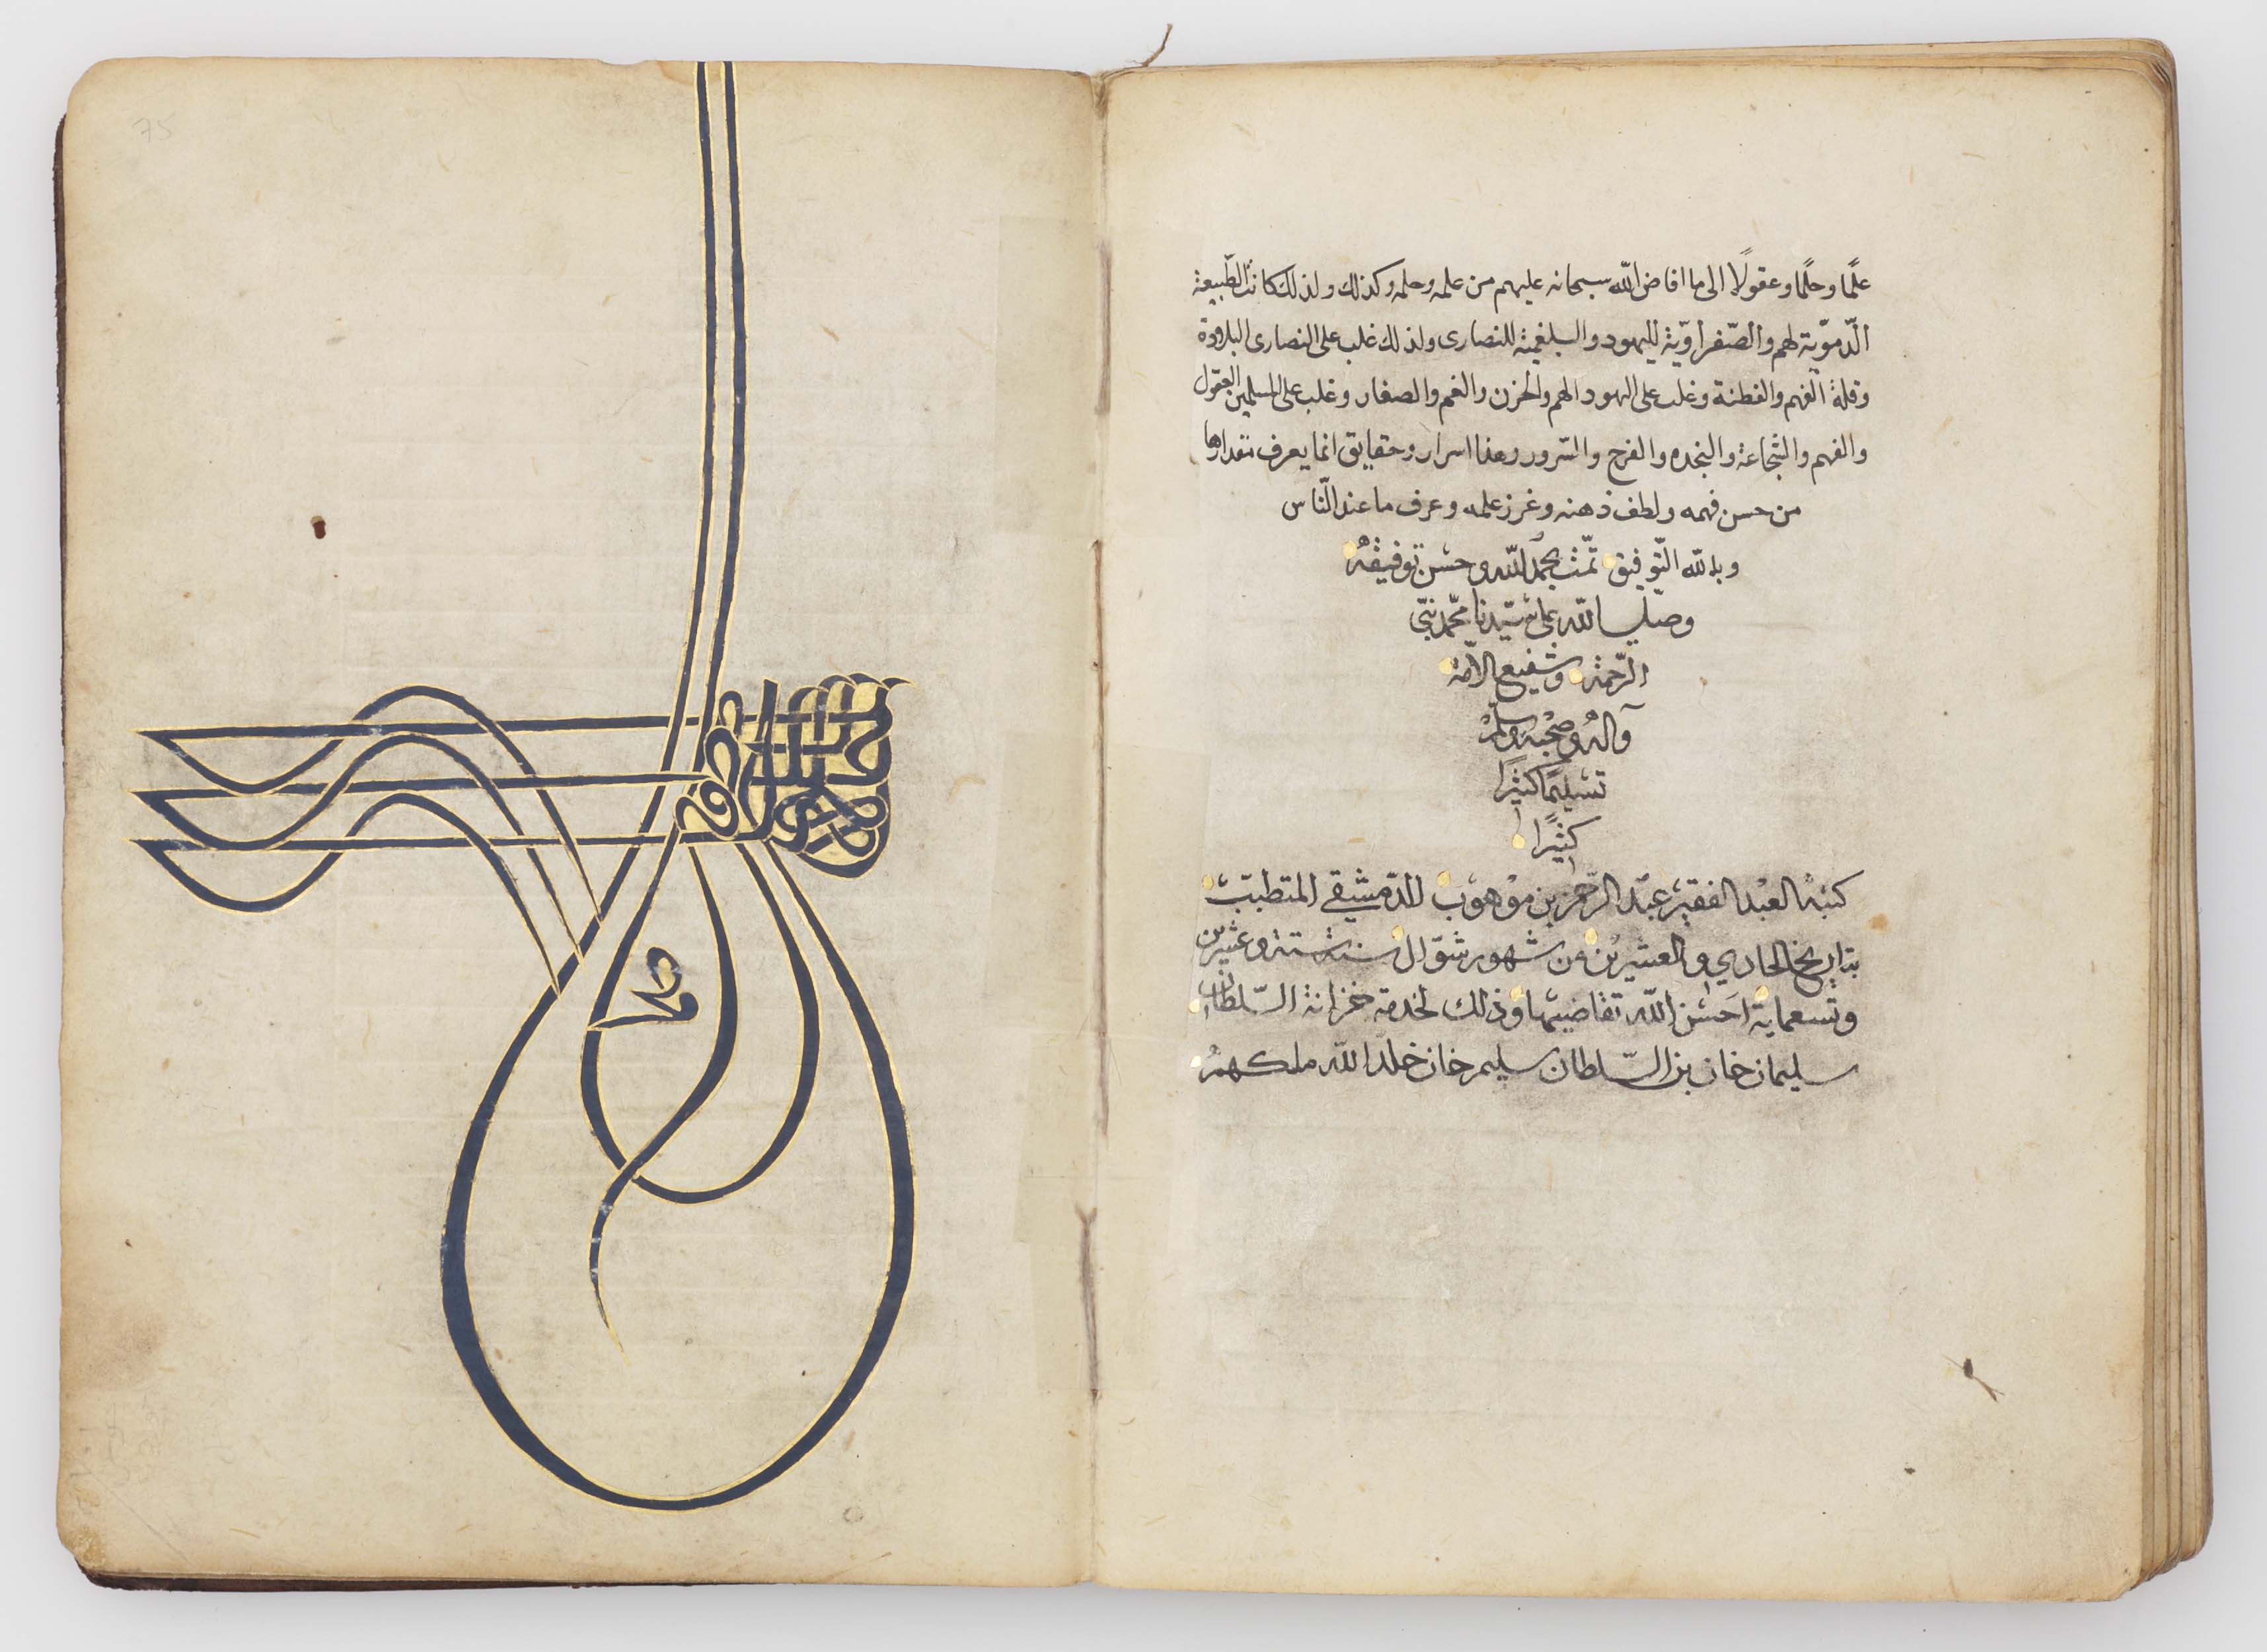 علمًا وحلمًا وعقولًا الى ما افاض الله سبحانه عليهم من علمه وحلمه وكذلك ولذلك كانت الطّبيعة
الدّمويّة لهم والصّفراويّة لليهود والبلغمية للنصارى ولذلك غلب على النصارى البلادة
وقلة الفهم والفطنة وغلب على اليهود الهم والحزن والغم والصغار وغلب على المسلمين العقول
والفهم والشجاعة والنجده والفرح والسّرور وهذا اسرار وحقايق انما يعرف مقدارها
من حسن فهمه ولطف ذهنه وغزر علمه وعرف ما عند النّاس
وبالله التّوفيق تمّت بحمد الله وحسن توفيقه
وصلى الله على سيّدنا محمّد نبيّ
الرّحمة وشفيع الامة
وآله وصحبه وسلم
تسليمًا كثيرًا
كثيرًا
كتبه العبد الفقير عبد الرّحمن بن موهوب الدّمشقي المتطبّب
بتاريخ الحادي والعشرين من شهور شوّال سنة ستة وعشرين
وتسعماية احسن الله تقاضيها وذلك لخدمة خزانة السّلطان
سليمان خان بن السّلطان سليم خان خلد الله ملكهم
75